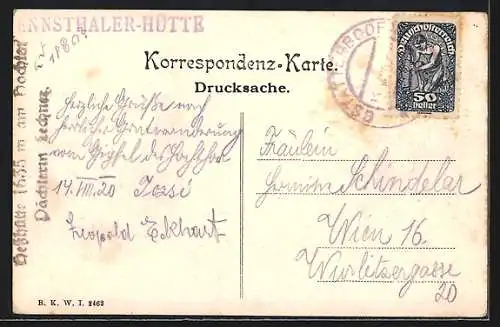 ENNSTHALER-HÜTTE
Heßhütte 1635 m am Hochtor
Pächterin Lechner
Korrespondenz-Karte.
Drucksache.
Deutschösterreich
50
heller
Herzliche Grüße nach
herrlicher Gratwanderung
vom Gipfel des Hochtor
14.VIII.20 Joszi
Leopold Eckhart
Fräulein
Hermine Schindelar
Wien 16.
Wurlitzergasse
20
B. K. W. I. 2463